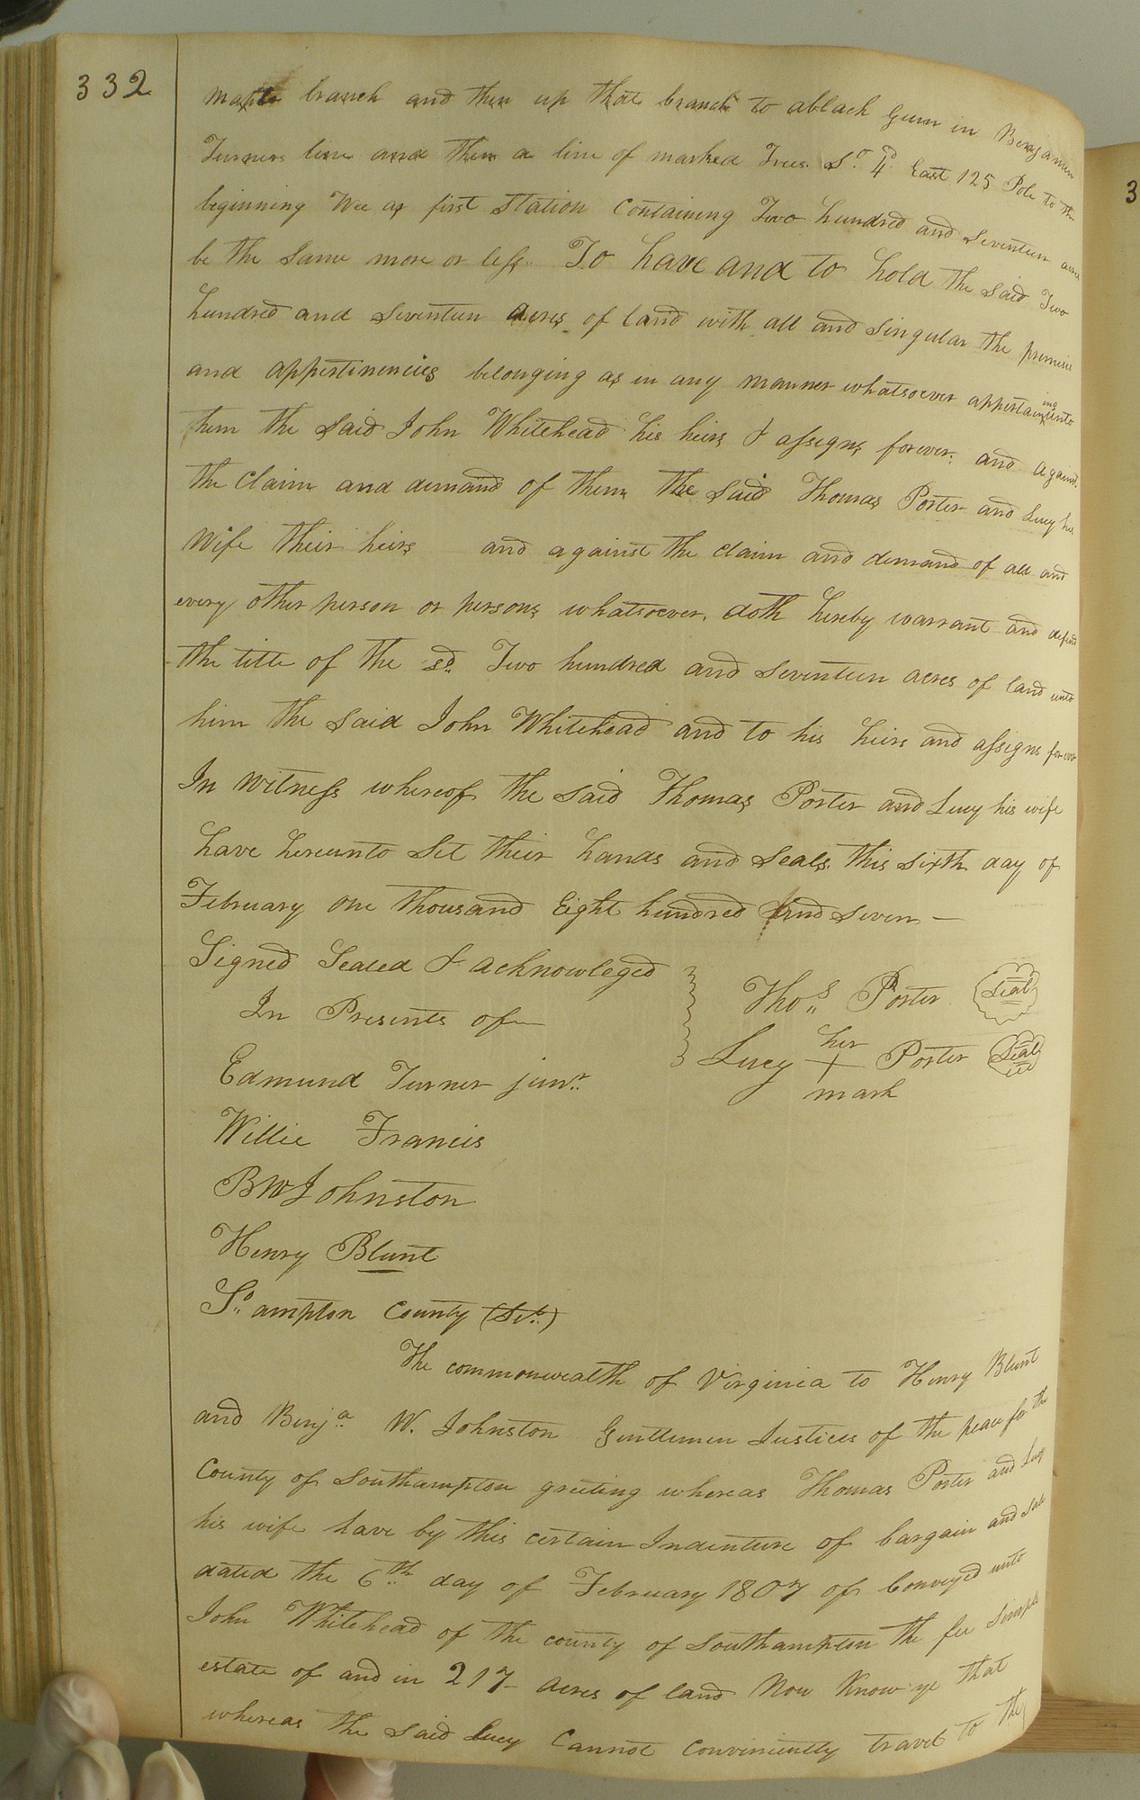 332
maple branch and then up that branch to ablack Gum in Benjamin
Turners line and then a line of marked Trees So. 4d. East 125 Pole to the
beginning Wee as first Station Containing Two hundred and Seventeen acres
be the Same more or less To have and to hold the Said Two
hundred and Seventeen acres of land with all and Singular the premises
and appertinencies belonging as in any manner whatsoever appertaining unto
them the Said John Whitehead his heirs & assigns forever. and against
the Claim and demand of them the Said Thomas Porter and Lucy his
Wife their heirs and against the claim and demand of all and
every other person or persons whatsoever, doth hereby warrant and defend
the title of the sd. Two hundred and Seventeen acres of land unto
him the Said John Whitehead and to his heirs and assigns forever
In Witness whereof the Said Thomas Porter and Lucy his wife
have hereunto Set their hands and Seals this Sixth day of
February one thousand Eight hundred And Seven —
Signed Sealed & acknowleged
In Presents of
Thos. Porter Seal
Lucy her + mark Porter Seal
Edmund Turner junr.
Willie Francis
BWJohnston
Henry Blunt
So. ampton County (Sct.)
The commonwealth of Virginia to Henry Blunt
and Benja. W. Johnston Gentlemen Justices of the peace for the
County of Southampton greeting whereas Thomas Porter and Lucy
his wife have by this certain Indenture of bargain and Sale
dated the 6th. day of February 1807 of Conveyed unto
John Whitehead of the county of Southampton the fee Simple
estate of and in 217 acres of land Now Know ye that
whereas the Said Lucy Cannot Conviniently travel to the
3